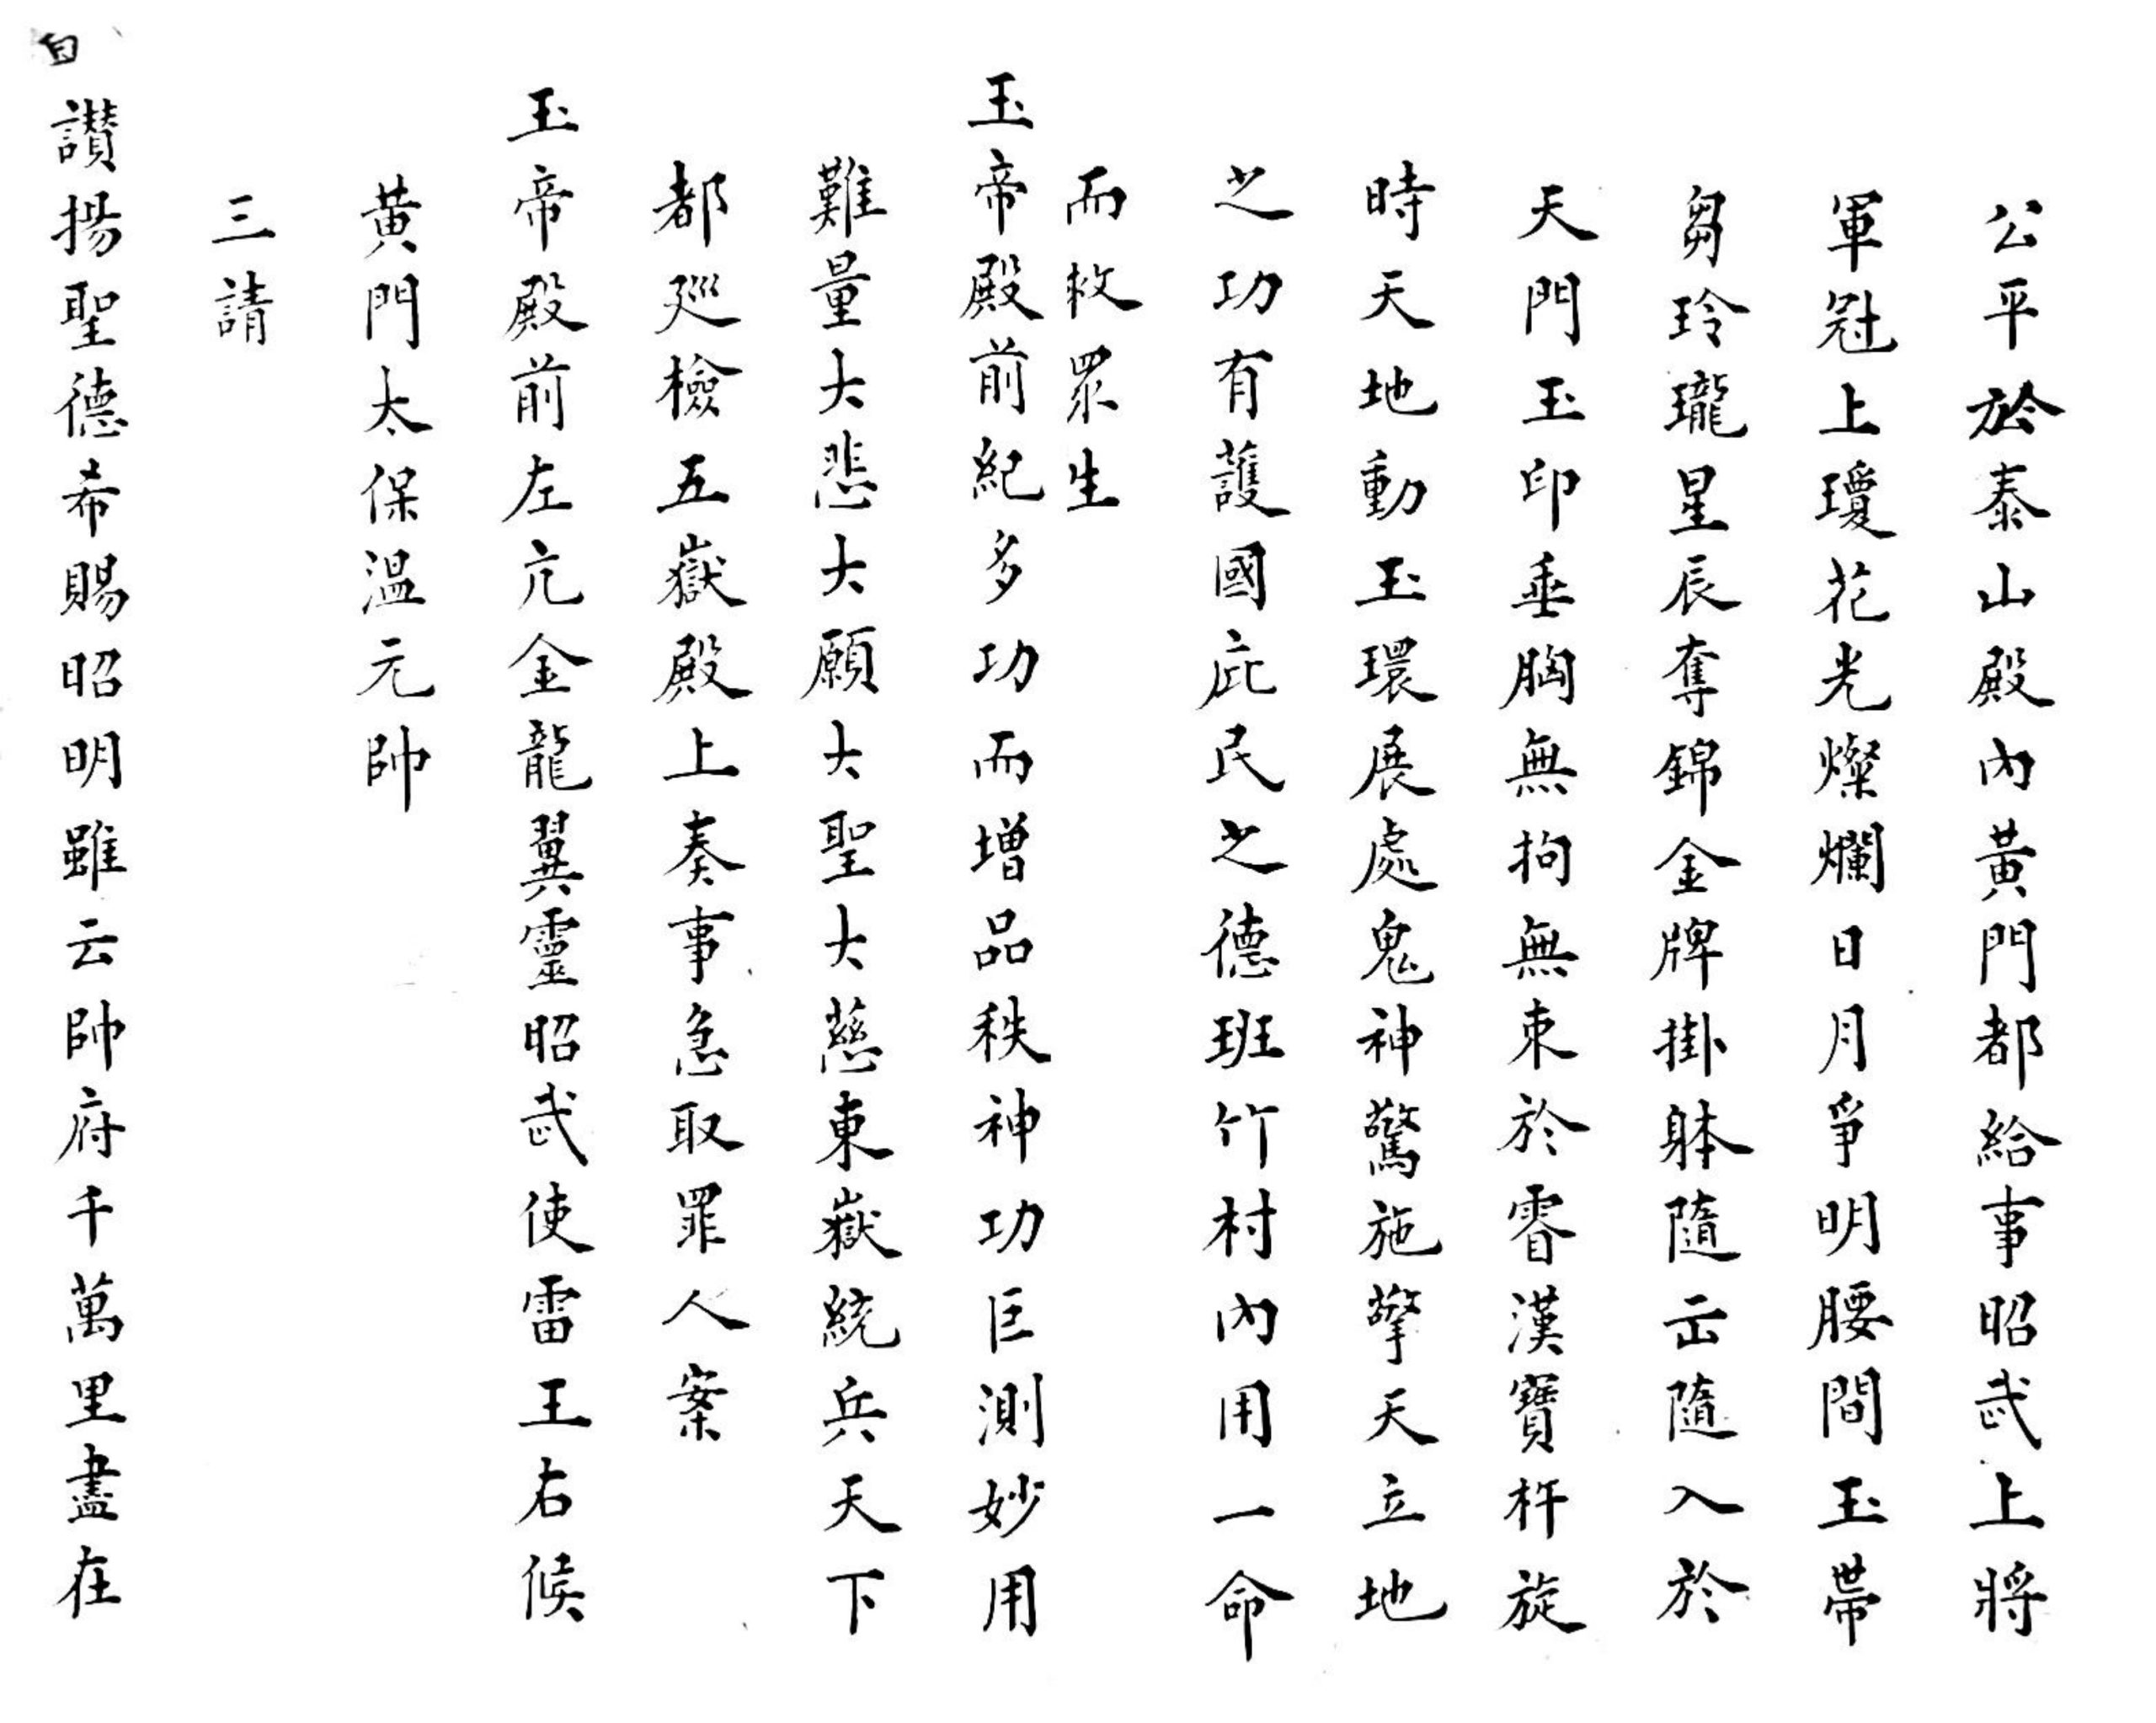 公平於泰山殿內黃門都給事昭武上將
軍冠上瓊花光燦爛日月爭明腰間玉帶
芻玲瓏星辰奪錦金牌掛躰隨出隨入於
天門玉印垂胸無拘無束於霄漢寶杵旋
時天地動玉環展處鬼神驚施擎天立地
之功有護國庇民之德班竹村內用一命
而救眾生
玉帝殿前紀多功而增品秩神功叵測妙用
難量大悲大願大聖大慈東嶽統兵天下
都廵檢五嶽殿上奏事急取罪人案
玉帝殿前左亢金龍翼靈昭武使雷王右候
黃門太保溫元帥
三請
白
讚揚聖德希賜昭明雖云帥府千萬里盡在